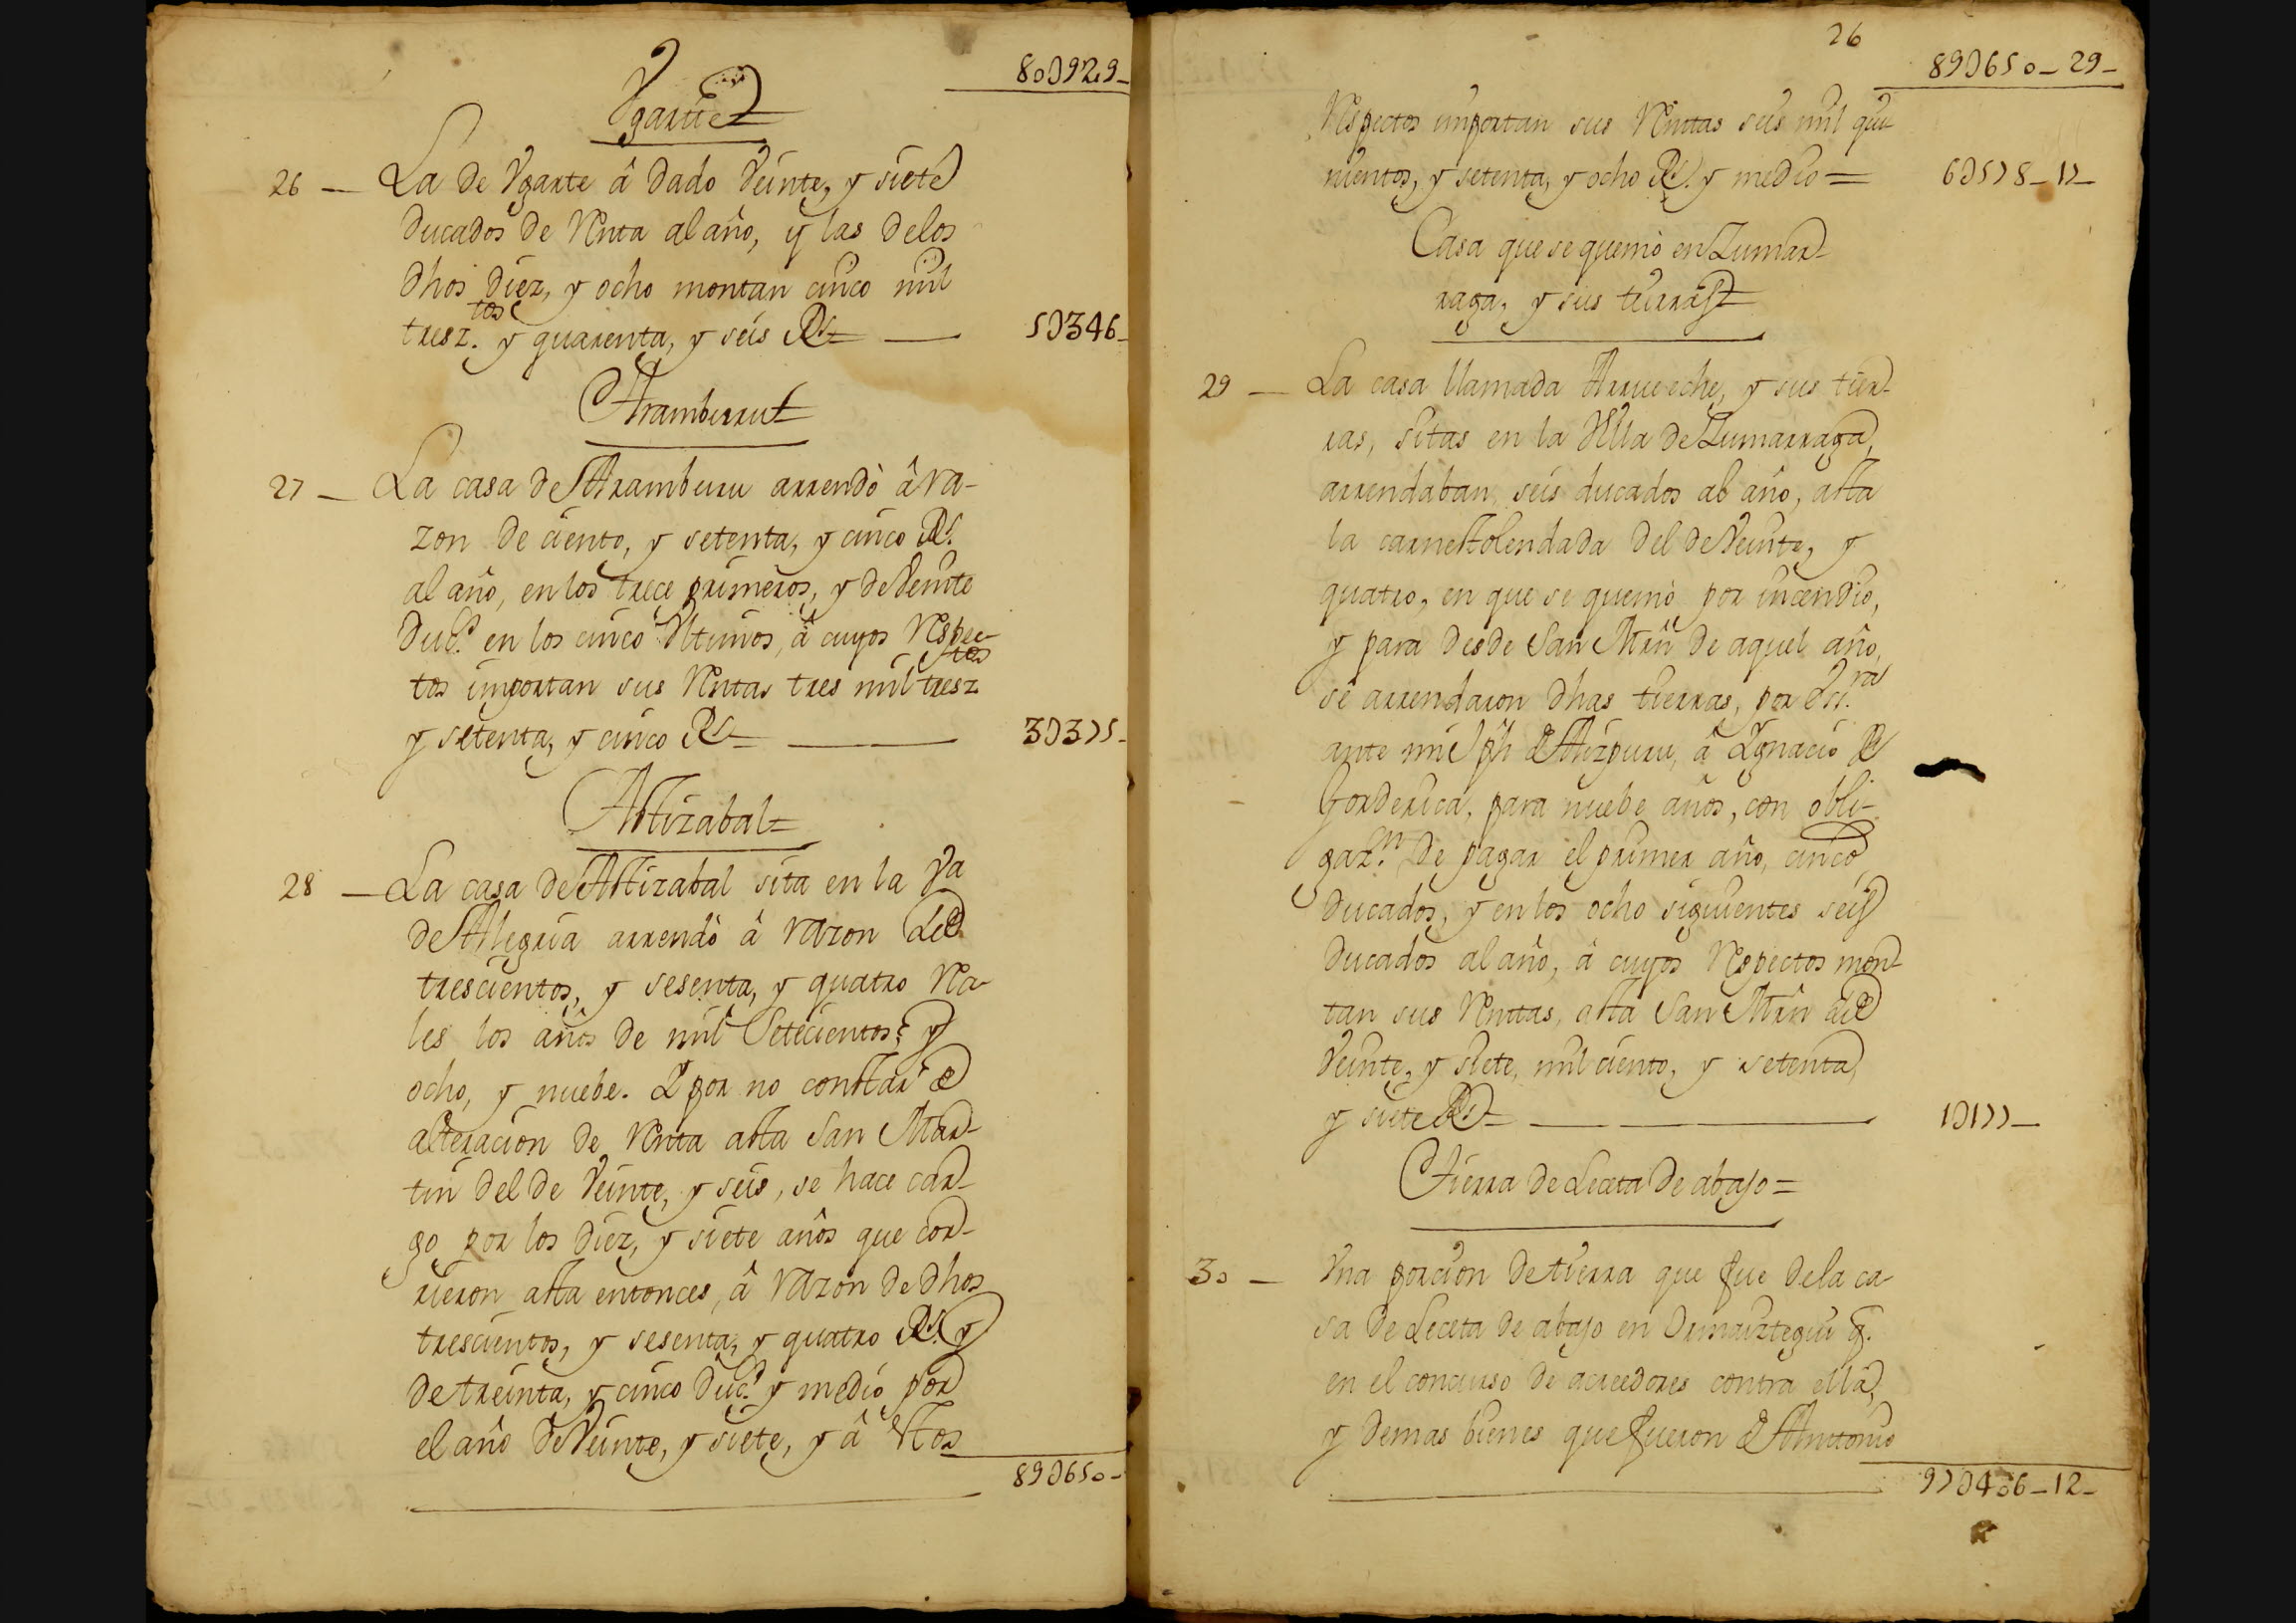 80U929-
Ygarte=
26 — La de Ygarte â dado Veinte, y siete
Ducados de Renta al año, y las delos
dhos Diez, y ocho montan cinco mil
tresz.tos y quarenta, y seis Rs= — 5U346-
Aramburu=
27 — La casa de Aramburu arrendò â ra-
zon de ciento, y setenta, y cinco Rs.
al año, en los trece primeros, y de Veinte
Duc.s en los cinco Vltimos, â cuyos Respec-
tos importan sus Rentas tres mil tresz.tos
y setenta, y cinco Rs= — 3U375-
Astizabal=
28 — La casa de Astizabal sita en la Va
de Alegria arrendô â razon de
trescientos, y sesenta, y quatro Rea-
les los años de mil Setecientos, y
ocho, y nuebe. Y por no constar de
alteracion de Renta asta San Mar-
tin del de Veinte, y seis, se hace car-
go por los Diez, y siete años que cor-
rieron asta entonces, â razon de dhos
trescientos, y sesenta, y quatro Rs. y
de treinta, y cinco Duc.s y medio por
el año de Veinte, y siete, y â estos
89U650-
26
89U650-29-
Respectos importan sus Rentas seis mil qui-
nientos, y setenta, y ocho Rs. y medio= 6U578-17-
Casa que se quemò en Zumar-
raga, y sus tierras=
29 — La casa llamada Arrueche, y sus tier-
ras, sitas en la Villa de Zumarraga,
arrendaban seis ducados al año, asta
la carnestolendada del de Veinte, y
quatro, en que se quemò por incendio,
y para desde San Mrñ de aquel año,
se arrendaron dhas tierras, por Ess.ra
ante mi Jph de Aizpuru, â Ygnacio de
Gorderica, para nuebe años, con obli-
gaz.on de pagar el primer año, cinco
Ducados, y en los ocho siguientes seis
Ducados al año, â cuyos Respectos mon-
tan sus Rentas, asta San Mrñ del
Veinte, y siete, mil ciento, y setenta,
y siete Rs= — 1U177-
Tierra de Leceta de abajo=
30 — Vna porcion de tierra que fue dela ca-
sa de Leceta de abajo en Ormaiztegui q.
en el concurso de acreedores contra ella,
y demas bienes que fueron de Antonio
97U406-12-